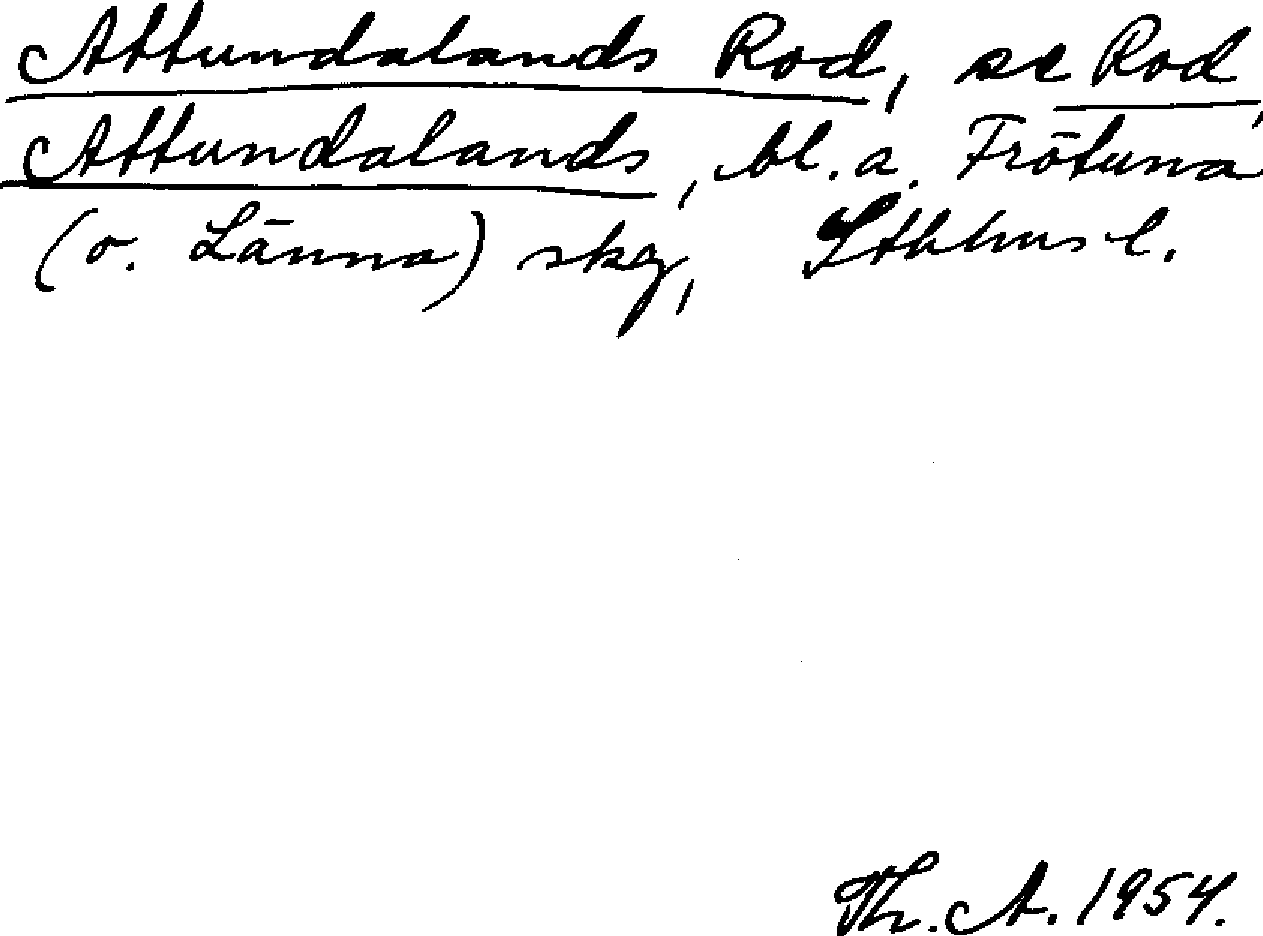 Attundalands Rod, se Rod,
Attundalands, bl. a. Frötuna
(o. Länna) skg, Sthhus l.
Th. A. 1954.